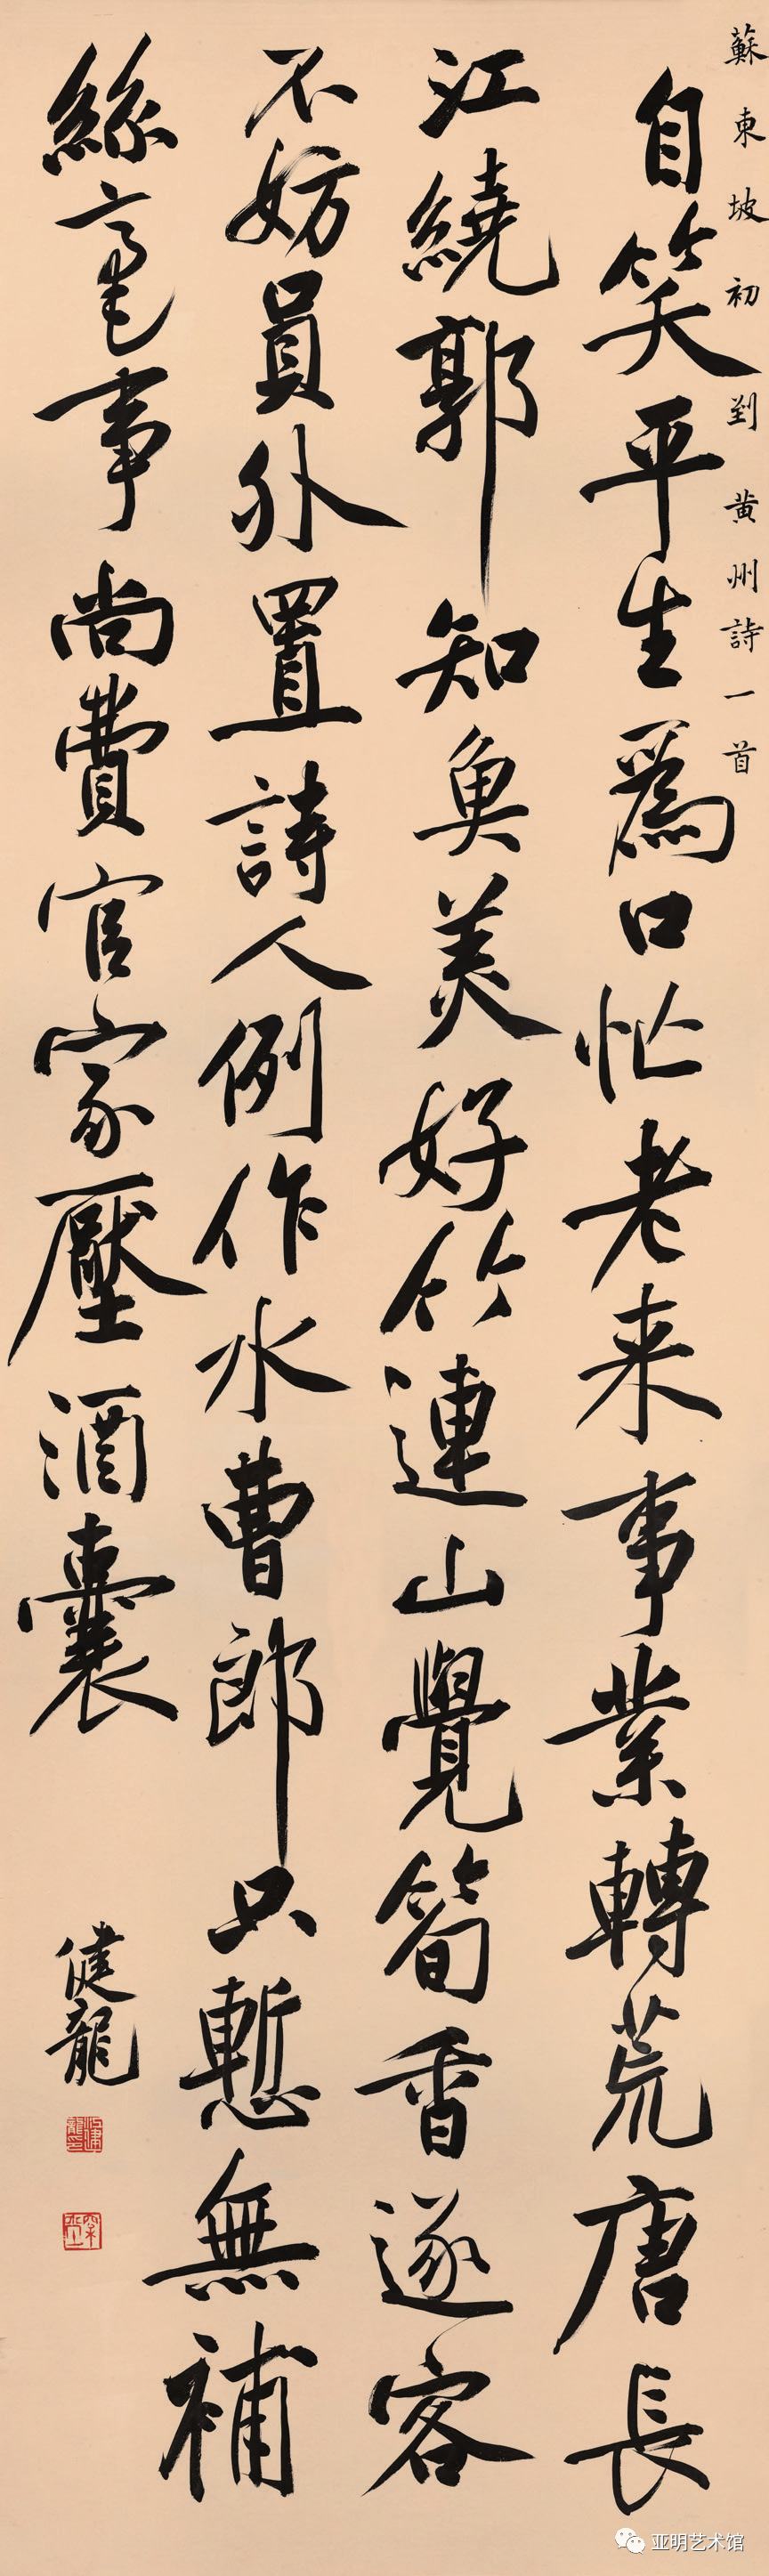 蘇東坡初到黃州詩一首
自笑平生爲口忙老来事業轉荒唐長
江繞郭知魚美好竹連山覺筍香逐客
不妨員外置詩人例作水曹郎只慙無補
絲毫事尚費官家壓酒囊
健龍
亚明艺术馆